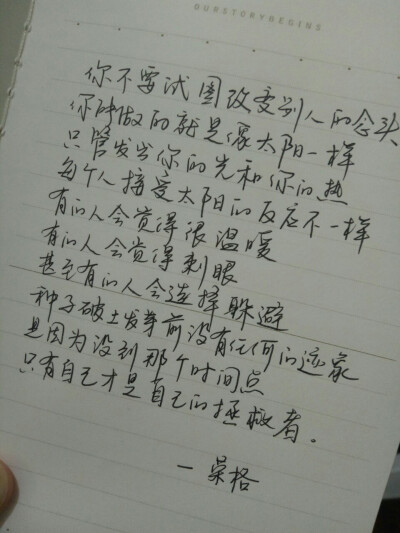 OURSTORYBEGINS
你不要试图改变别人的念头
你所做的就是像太阳一样
只管发出你的光和你的热
每个人接受太阳的反应不一样
有的人会觉得很温暖
有的人会觉得刺眼
甚至有的人会选择躲避
种子破土发芽前没有任何的迹象
是因为没到那个时间点
只有自己才是自己的拯救者。
—荣格